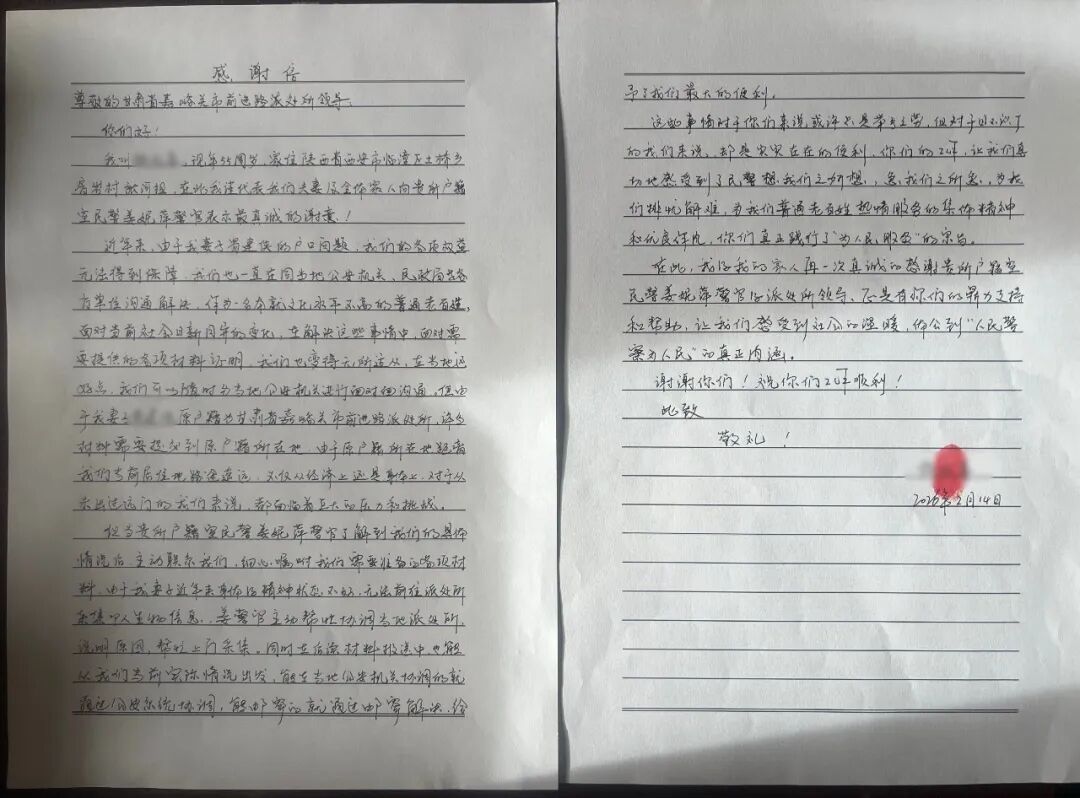 感谢信
尊敬的甘肃省嘉峪关市前进路派出所领导:
你们好!
我叫 现年55周岁,家住陕西省西安市临潼区土桥乡
村 组,在此我谨代表我们夫妻及全体家人向贵所户籍
室民警姜妮萍警官表示最真诚的谢意!
近年来,由于我妻子省建债的户口问题,我们的各项权益
无法得到保障,我们也一直在同当地公安机关、民政局等各
有单位沟通解决,作为一名本就文化水平不高的普通老百姓,
面对当前社会日新月异的变化,在解决这些事情中,面对需
要提供的各项材料证明,我们也变得无所适从,在当地还
好点,我们可以随时与当地公安机关进行面对面沟通,但由
于我妻子 原户籍为甘肃省嘉峪关市前进路派出所,许多
材料需要提交到原户籍所在地,由于原户籍所在地距离
我们当前居住地路途遥远,不仅从经济上还是身体上,对于从
未出过远门的我们来说,都面临着巨大的压力和挑战。
但当贵所户籍室民警姜妮萍警官了解到我们的具体
情况后,主动联系我们,细心嘱咐我们需要准备的各项材
料,由于我妻子近年来身体及精神状态不好,无法前往派出所
采集个人生物信息,姜警官主动帮忙协调当地派出所,
说明原因,帮忙上门采集。同时在后续材料报送中也能
从我们当前实际情况出发,能在当地公安机关协调的就
通过公安系统协调,能邮寄的就通过邮寄解决,给
予了我们最大的便利。
这些事情对于你们来说或许只是举手之劳,但对于目不识丁
的我们来说,却是实实在在的便利,你们的工作,让我们真
切地感受到了民警想我们之所想,急我们之所急,为我
们排忧解难,为我们普通老百姓热情服务的集体精神
和优良作风,你们真正践行了“为人民服务”的宗旨。
在此,我及我的家人再一次真诚的感谢贵所户籍室
民警姜妮萍警官及派出所领导、正是有你们的鼎力支持
和帮助,让我们感受到社会的温暖,体会到“人民警
察为人民”的真正内涵。
谢谢你们!祝你们工作顺利!
此致
敬礼!
2026年2月14日